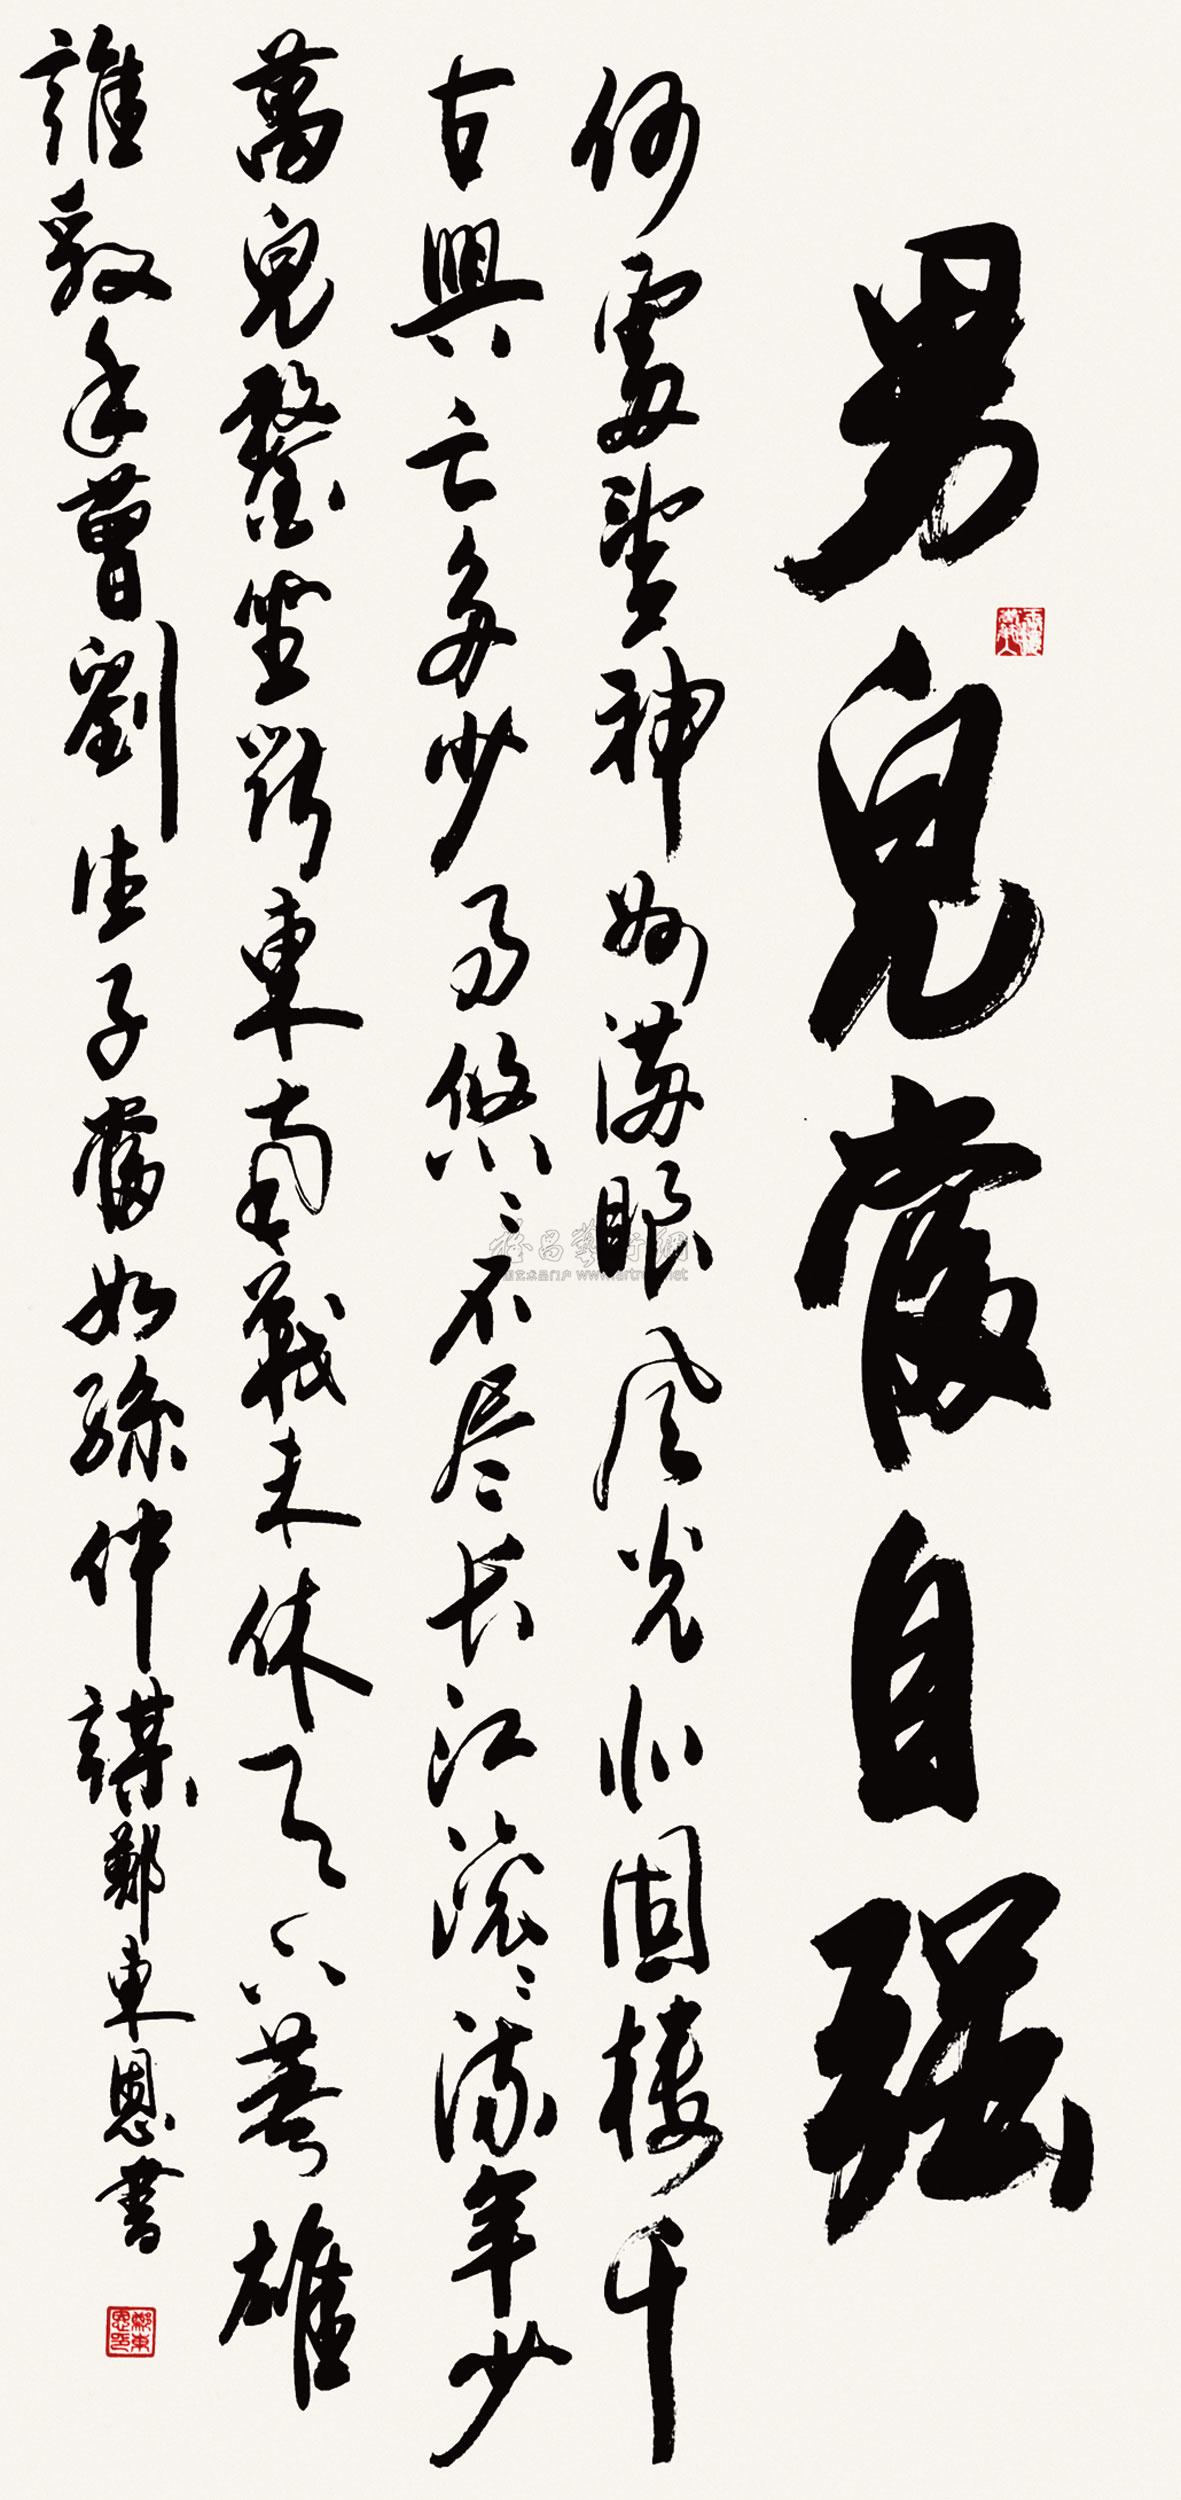 男兒當自強
何處望神州滿眼風光北固樓千
古興亡多少事悠悠不尽长江滾滾流年少
萬兜鍪坐斷東南戰未休天下英雄
誰敵手曹劉生子當如孫仲謀鄭東恩書
鄭東恩印
雅昌藝術網
www.artron.net